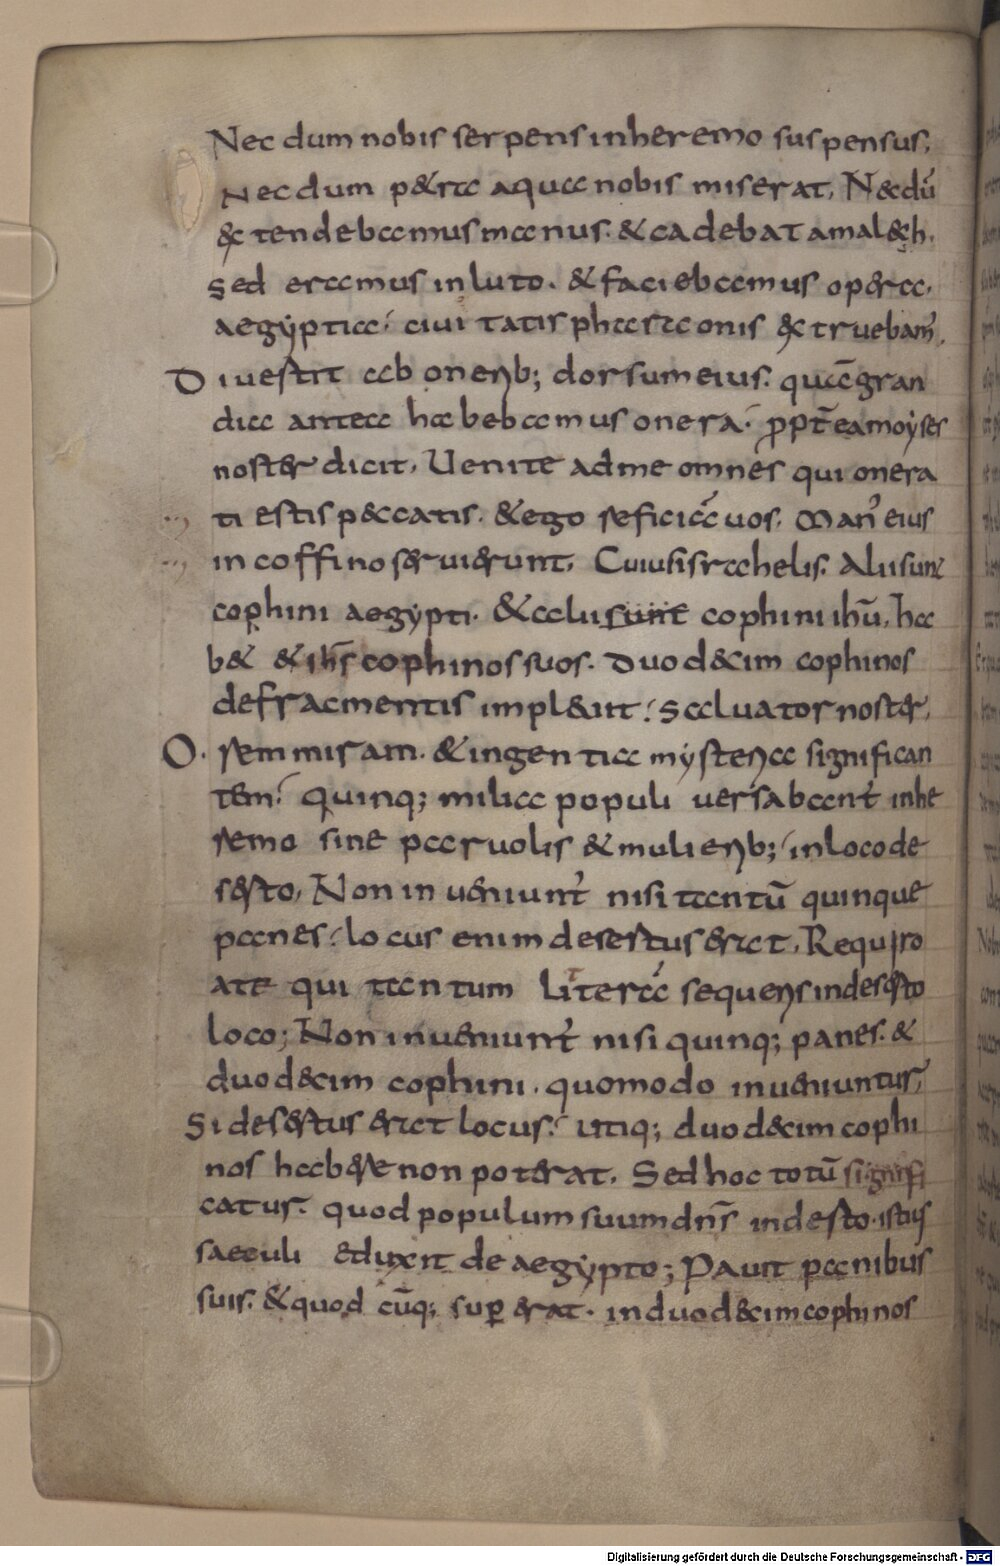 Nec dum nobis serpens inheremo suspensus;
Nec dum p&ra aqua nobis miserat, N&dū
&ctendebamus manus. & cadebat amal&h.
sed eramus inluto. & faciebamus opera.
aegyptia; civitatis pharaonis &ctruebam̄.
Divestit ab onerib; dorsum eius. quāgran
dia antea habebamus onera; pptēa moyses
noster dicit, Uenite adme omnes qui onera
ti estis p&catis. &ego reficiā uos. Man' eius
in coffino seruierunt, Cuius israhelis. Alii sunt
cophini aegypti. &alii sunt cophini ihū, ha
b& & ihs cophinos suos. Duod&im cophinos
defracmentis impleuit; saluator noster,
O. rem miram. &ingentia mysteria significan
tem; Quinq; milia populi versabant' inhe
remo sine paruolis & mulierib; inlocode
serto, Non inueniunt' nisi tantū quinque
panes; locus enim desertus erat, Requiro
ate qui tantum literā sequeris indeserto
loco; Non inueniunt' nisi quinq; panes. &
duod&im cophini. quomodo inueniuntur,
Si desertus erat locus; utiq; duod&im cophi
nos habere non poterat. Sed hoc totū signifi
catur. quod populum suum dn̄s indesto. istius
saeculi eduxit de aegypto; Pauit panibus
suis. & quod cūq; sup erat. induod&im cophinos
Digitalisierung gefördert durch die Deutsche Forschungsgemeinschaft - DFG